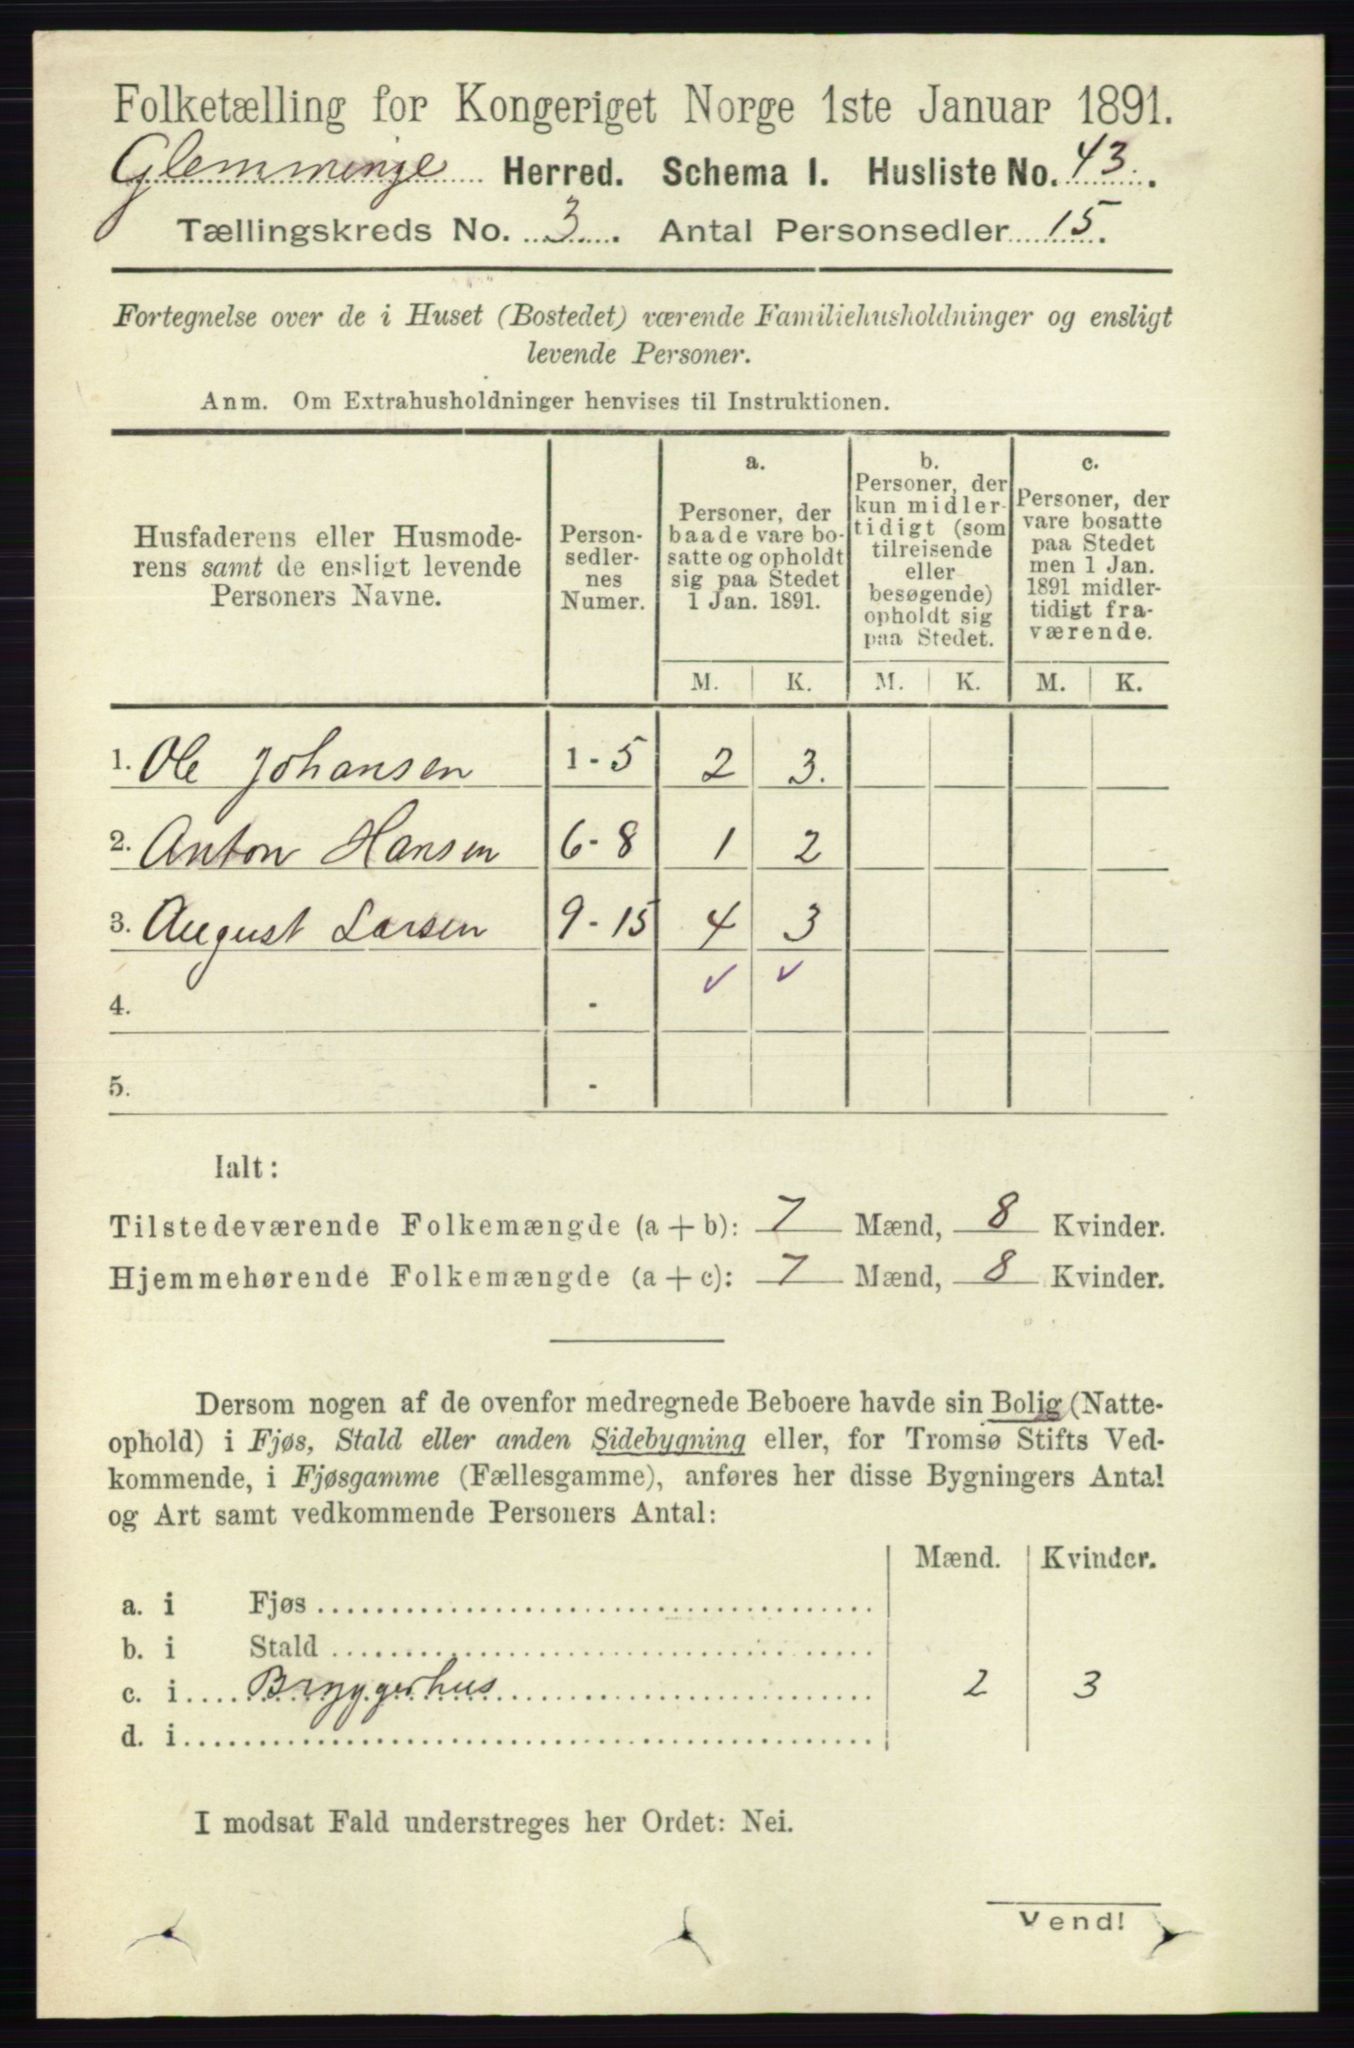 Folketælling for Kongeriget Norge 1ste Januar 1891.
Glemminge Herred. Schema I. Husliste No. 43.
Tællingskreds No. 3. Antal Personsedler 15.
Fortegnelse over de i Huset (Bostedet) værende Familiehusholdninger og ensligt
levende Personer.
Anm. Om Extrahusholdninger henvises til Instruktionen.
Husfaderens eller Husmode-
rens samt de ensligt levende
Personers Navne.
Person-
sedler-
nes
Numer.
a.
Personer, der
baade vare bo-
satte og opholdt
sig paa Stedet
1 Jan. 1891.
b.
Personer, der
kun midler-
tidigt (som
tilreisende
eller
besøgende)
opholdt sig
paa Stedet.
c.
Personer, der
vare bosatte
paa Stedet
men 1 Jan.
1891 midler-
tidigt fra-
værende.
M. K. M. K. M. K.
1. Ole Johansen 1-5 2 3.
2. Anton Hansen 6-8 1 2
3. August Larsen 9-15 4 3
4. -
5. -
Ialt:
Tilstedeværende Folkemængde (a + b): 7 Mænd, 8 Kvinder.
Hjemmehørende Folkemængde (a + c): 7 Mænd, 8 Kvinder.
Dersom nogen af de ovenfor medregnede Beboere havde sin Bolig (Natte-
ophold) i Fjøs, Stald eller anden Sidebygning eller, for Tromsø Stifts Ved-
kommende, i Fjøsgamme (Fællesgamme), anføres her disse Bygningers Antal
og Art samt vedkommende Personers Antal:
Mænd. Kvinder.
a. i Fjøs
b. i Stald
c. i Bryggerhus 2 3
d. i
I modsat Fald understreges her Ordet: Nei.
Vend!